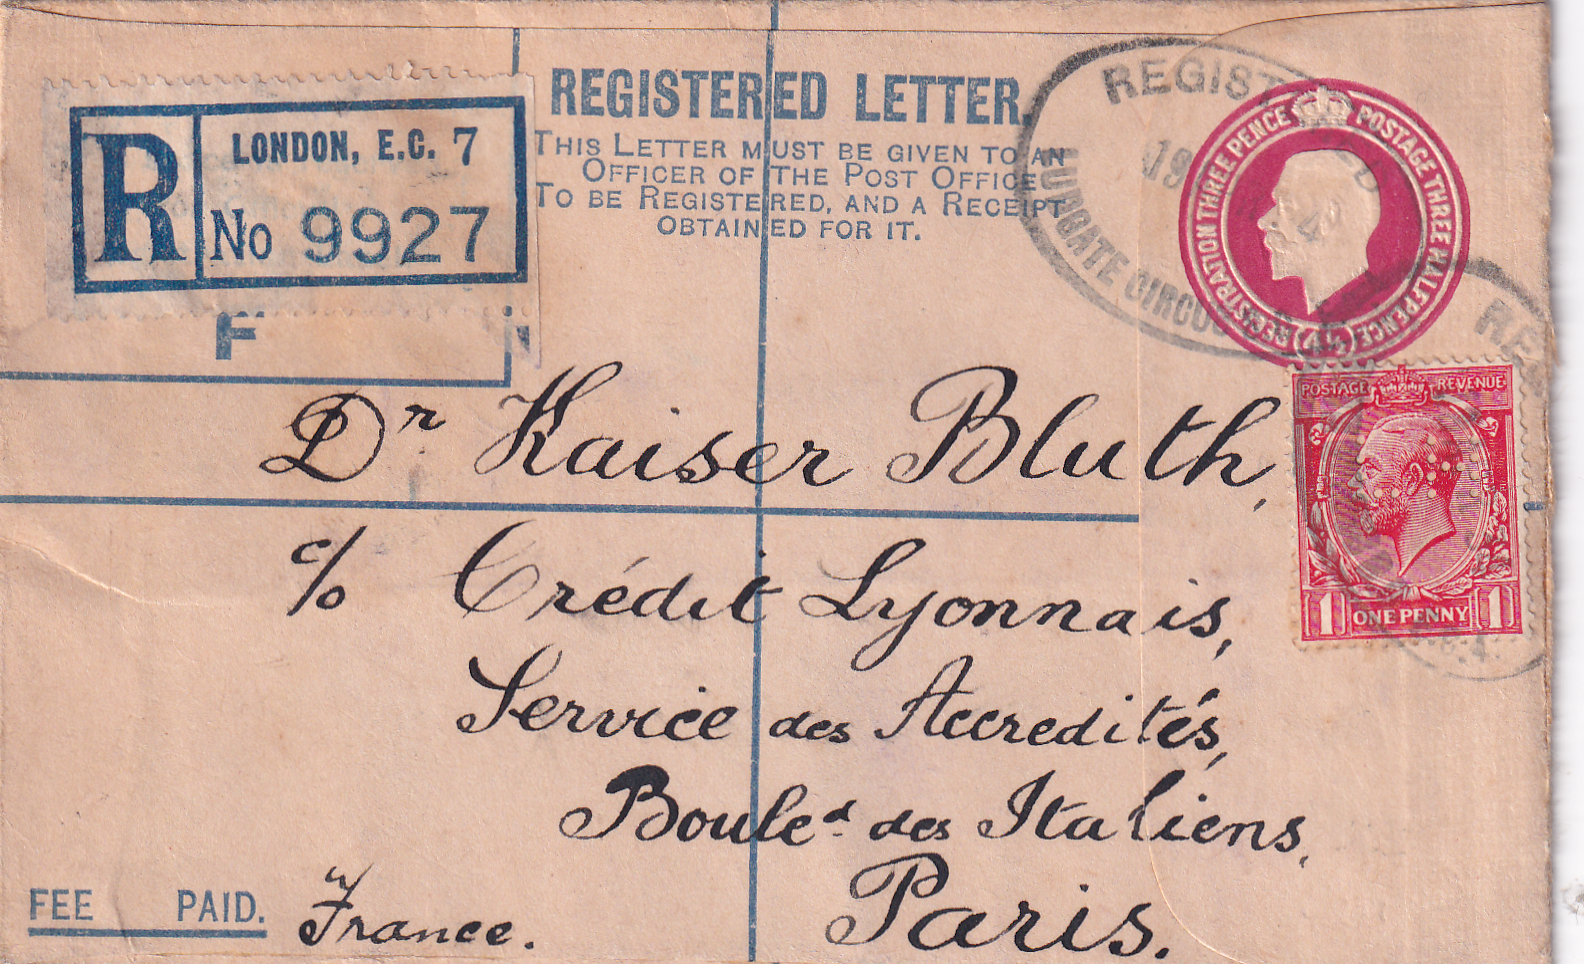 REGISTERED LETTER.
THIS LETTER MUST BE GIVEN TO AN
OFFICER OF THE POST OFFICE
TO BE REGISTERED, AND A RECEIPT
OBTAINED FOR IT.
R
LONDON, E.C. 7
No 9927
F
REGISTERED
19
LUDGATE CIRCUS
REGISTRATION THREE PENCE POSTAGE THREE HALFPENCE
POSTAGE REVENUE
1 ONE PENNY 1
Dr Kaiser Bluth,
c/o Crédit Lyonnais,
Service des Accredités,
Bouled des Italiens,
Paris.
France.
FEE PAID.